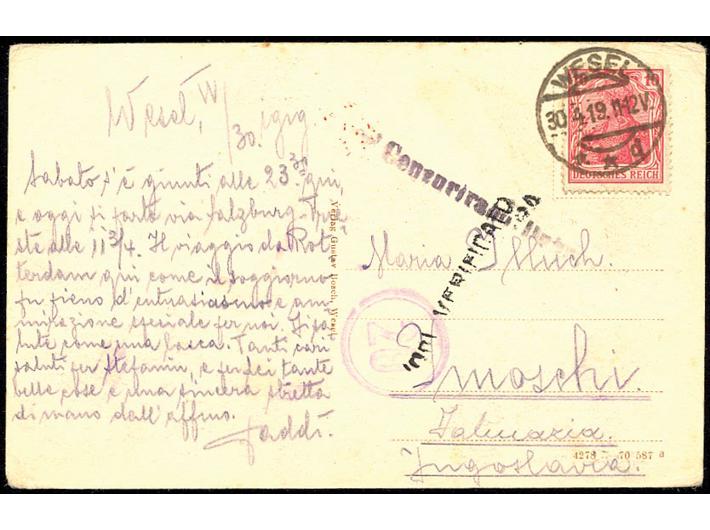 Wesel, IV/30. 1919
Sabato s'è giunti alle 23 30 qui,
e oggi si parte via Salzburg-Trie
ste alle 11 3/4. Il viaggio da Rot
terdam qui come il soggiorno
fu pieno d'entusiasmo e am
mirazione speciale per noi.
lute come una lasca. Tanti cari
saluti per Stefanin, e per lei tante
belle cose e una sincera stretta
di mano dall'affmo.
Verlag Gustav Hosch, Wesel
WESEL
30.4.19.11-12V.
* * d
10 10
DEUTSCHES REICH
Cenzurirano
VERIFICATO
Maria
Smoschi.
Dalmazia.
Jugoslavia.
4278 70 587 a